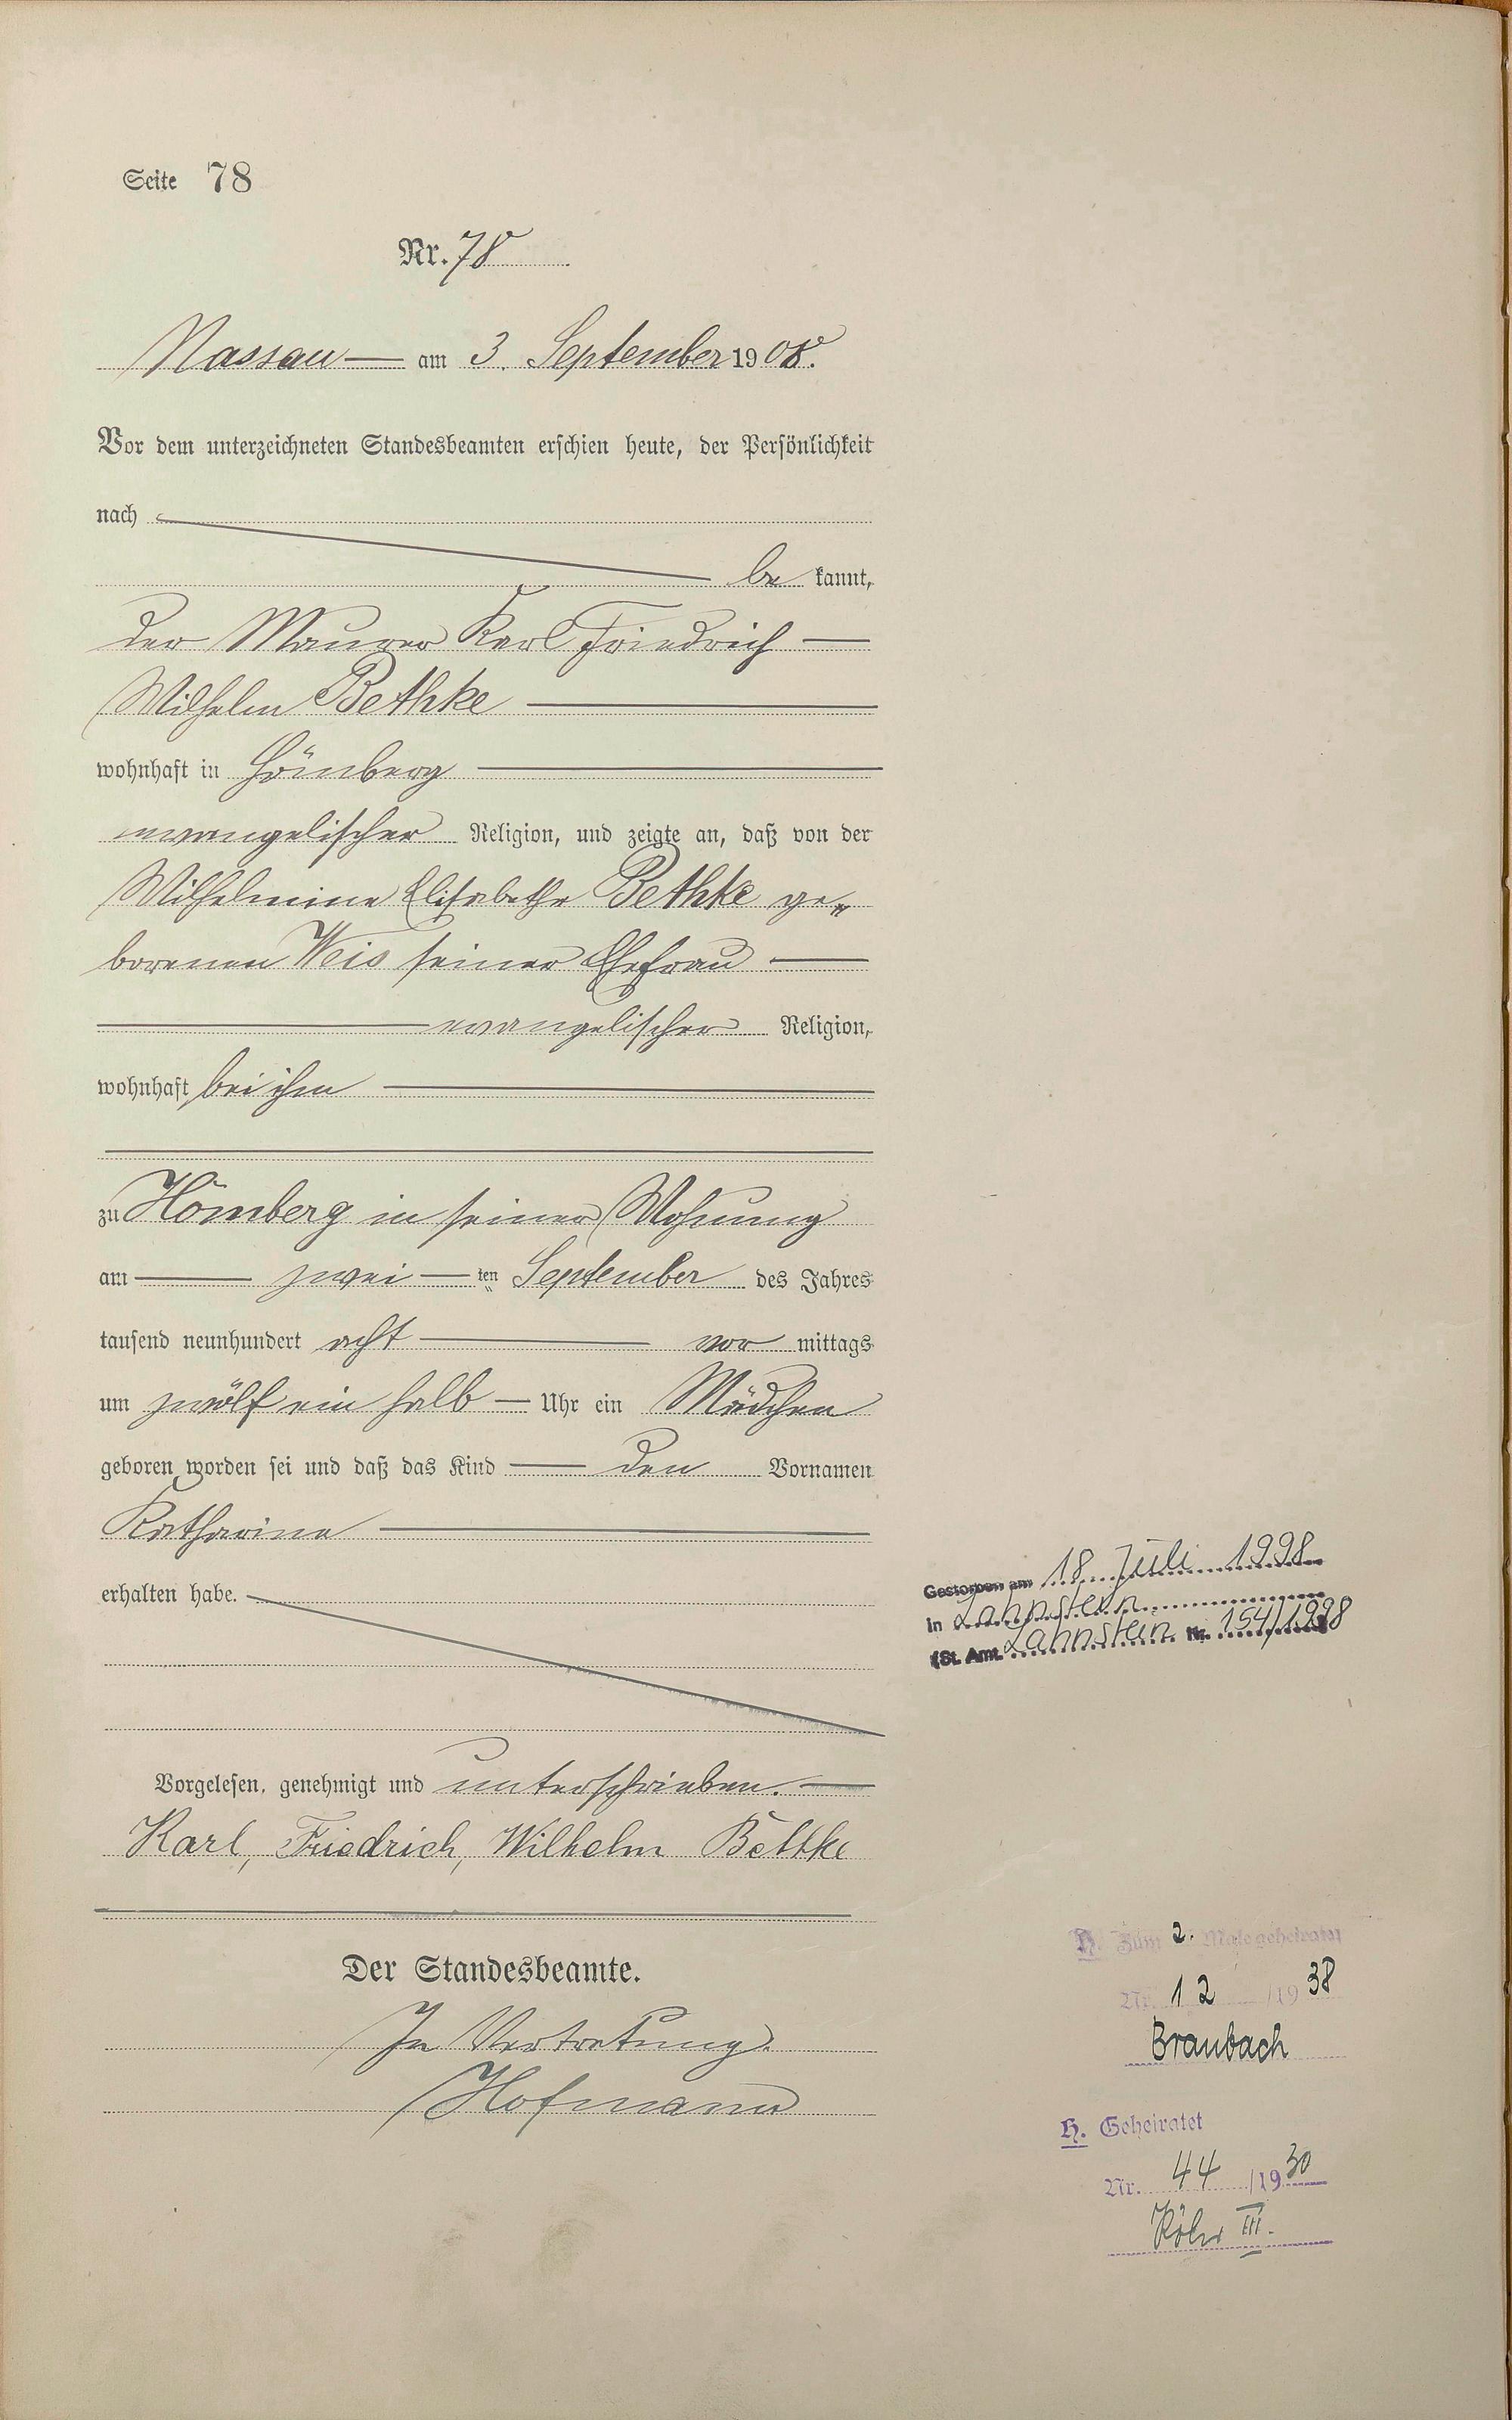 Seite 78
Nr. 78
Nassau am 3. September 1908.
Vor dem unterzeichneten Standesbeamten erschien heute, der Persönlichkeit
nach
be kannt,
der Maurer Karl Friedrich
Wilhelm Bethke
wohnhaft in Hömberg
evangelischer Religion, und zeigte an, daß von der
Wilhelmine Elisabethe Bethke ge„
borenen Weis seiner Ehefrau
evangelischer Religion,
wohnhaft bei ihm
zu Hömberg in seiner Wohnung
am zwei ten September des Jahres
tausend neunhundert acht vor mittags
um zwölf ein halb Uhr ein Mädchen
geboren worden sei und daß das Kind den Vornamen
Katharina
erhalten habe.
Gestorben am 18. Juli 1998
in Lahnstein
(St. Amt. Lahnstein Nr. 154/1998
Vorgelesen, genehmigt und unterschrieben.
Karl, Friedrich, Wilhelm Bethke
Der Standesbeamte.
In Vertretung.
Hofmann
H. Zum 2. Male geheiratet
Nr. 12 /19 38
Braubach
H. Geheiratet
Nr. 44 /19 30
Köln III.